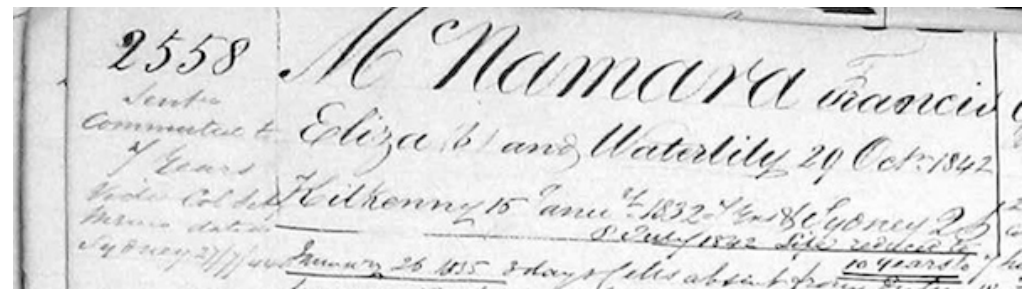 2558
Sentce
Commuted to
7 Years
Vide Col Sec
Memo dated
Sydney 27/7/44
McNamara Francis
Eliza (6) and Waterlily 29 Octr. 1842
Kilkenny 15 Januy 1832 7 Yrs & Sydney
8 July 1842 Life reduced to
10 years to 7
January 26 1835 3 days Cells absent from